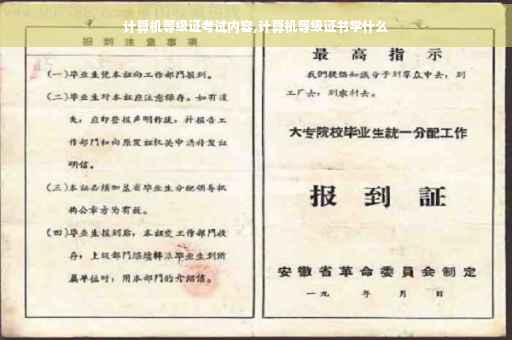 计算机等级证考试内容,计算机等级证书学什么
报到注意事项
(一)毕业生凭本证向工作部门报到。
(二)毕业生对本证应注意保存。如有遗
失,应即登报声明作废,并报告工
作部门和向原发证机关申请补发证
明信。
(三)本证必须加盖省毕业生分配领导机
构公章方为有效。
(四)毕业生报到后,本证交工作部门收
存;上级部门继续转派毕业生到所
属单位时,用本部门的介绍信。
最高指示
我们提倡知识分子到群众中去,到
工厂去,到农村去。
大专院校毕业生统一分配工作
报到証
安徽省革命委員会制定
一九 年 月 日